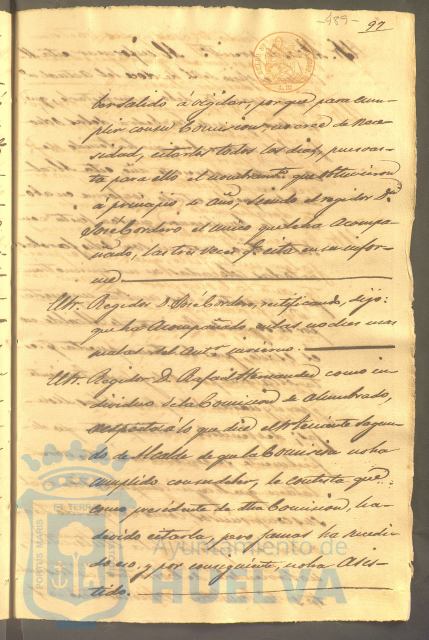 -489-
97
ber salido á vigilar, porque para cum-
plir con su Comision no era de Nece-
sidad, citarles todos los dias, pues bas-
ta para ello el nombramto. que obtuvieron
á principio de año; siendo el regidor D.
José Cordero el unico que le ha acompa-
ñado, las tres veces qe. cita en su infor-
me.
Otr. Regidor D. José Cordero, rectificando, dijo:
que ha acompañado estas noches mas
malas del invierno.
Otr. Regidor D. Rafael Hernandez como in-
dividuo de la Comision de Alumbrado,
respecto á lo que dice el Teniente segun-
do de Alcalde de que la Comision no ha
cumplido con su deber, le contesta que
como presidente de dha Comision, ha
debido citarla, pero jamas ha sucedi-
do eso, y por consiguiente, no ha asis-
tido.
PORTUS MARIS
Ayuntamiento de
HUELVA